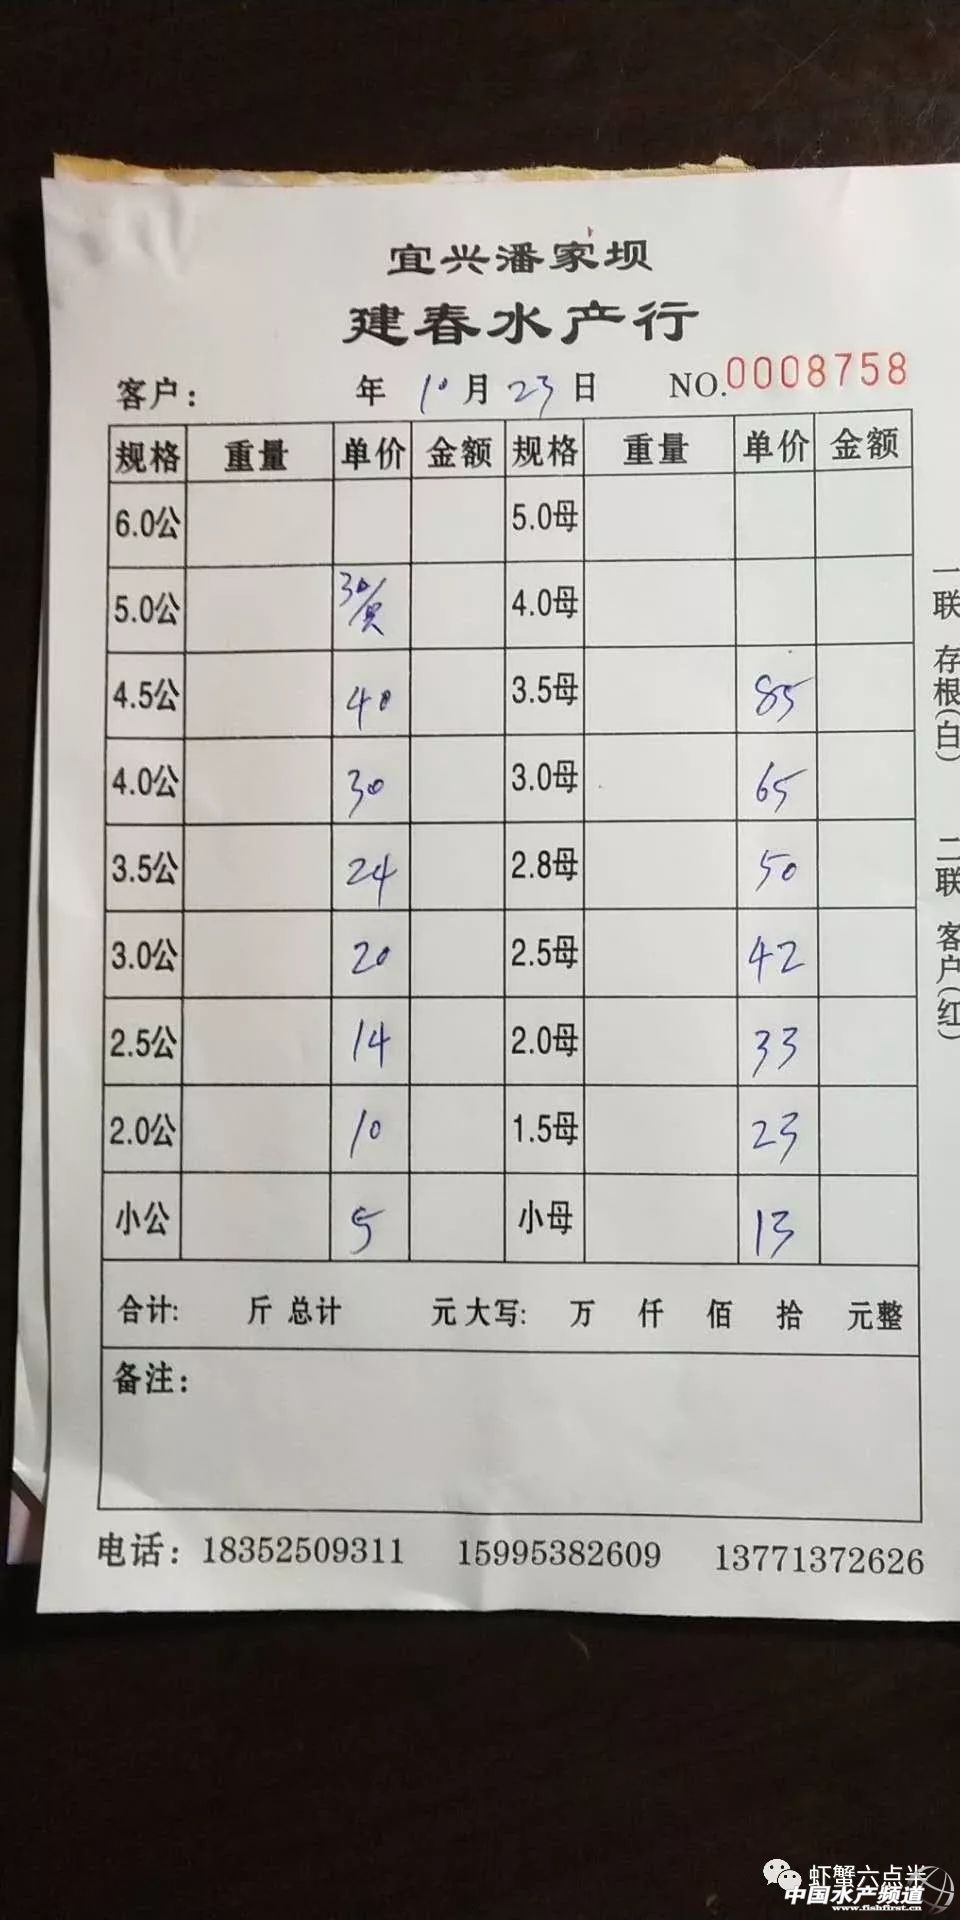 宜兴潘家坝
建春水产行
客户： 年 10月23日 NO.0008758
规格 重量 单价 金额 规格 重量 单价 金额
6.0公 5.0母
5.0公 30/只 4.0母
4.5公 40 3.5母 85
4.0公 30 3.0母 65
3.5公 24 2.8母 50
3.0公 20 2.5母 42
2.5公 14 2.0母 33
2.0公 10 1.5母 23
小公 5 小母 13
合计： 斤 总计 元 大写： 万 仟 佰 拾 元整
备注：
电话：18352509311 15995382609 13771372626
一联 存根(白) 二联 客户(红)
虾蟹六点半
中国水产频道
www.fishfirst.cn